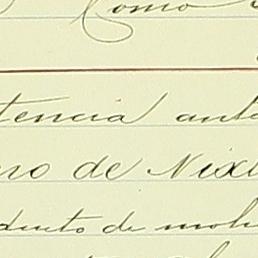 Como
tencia ante
no de Nixt
ducto de moli